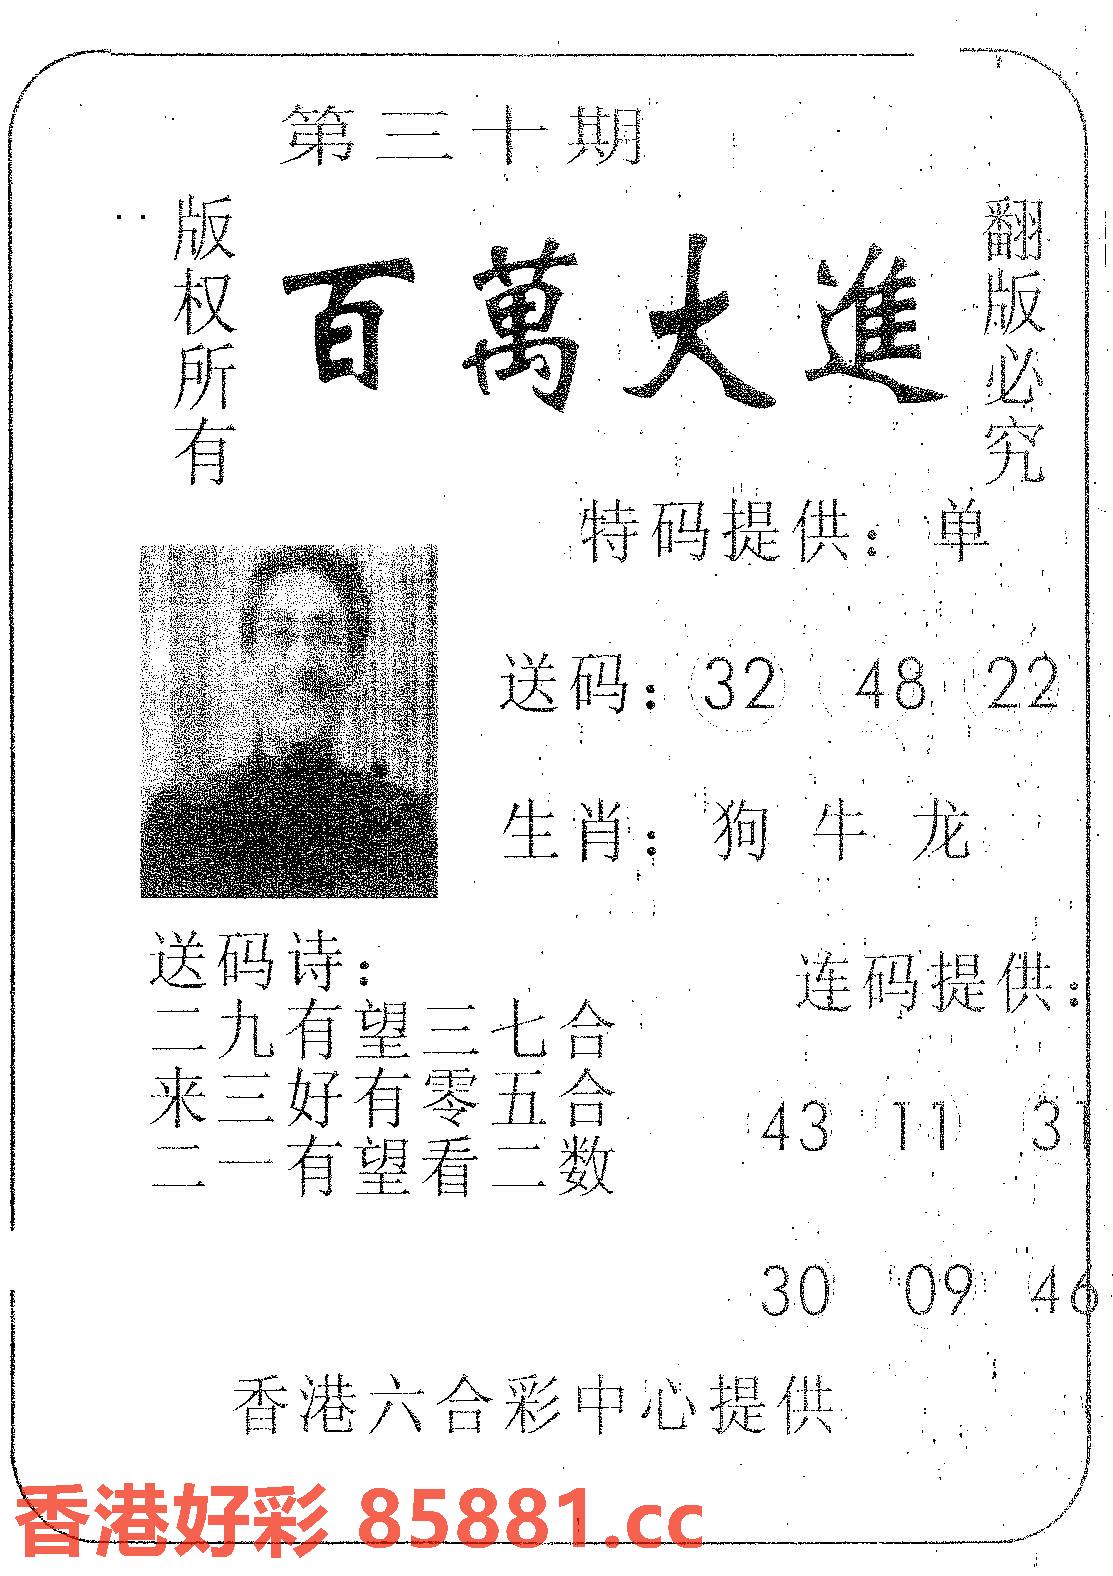 第三十期
版权所有
百萬大進
翻版必究
特码提供：单
送码：32 48 22
生肖：狗 牛 龙
送码诗：
二九有望三七合
来三好有零五合
二一有望看二数
连码提供：
43 11 31
30 09 46
香港六合彩中心提供
香港好彩 85881.cc